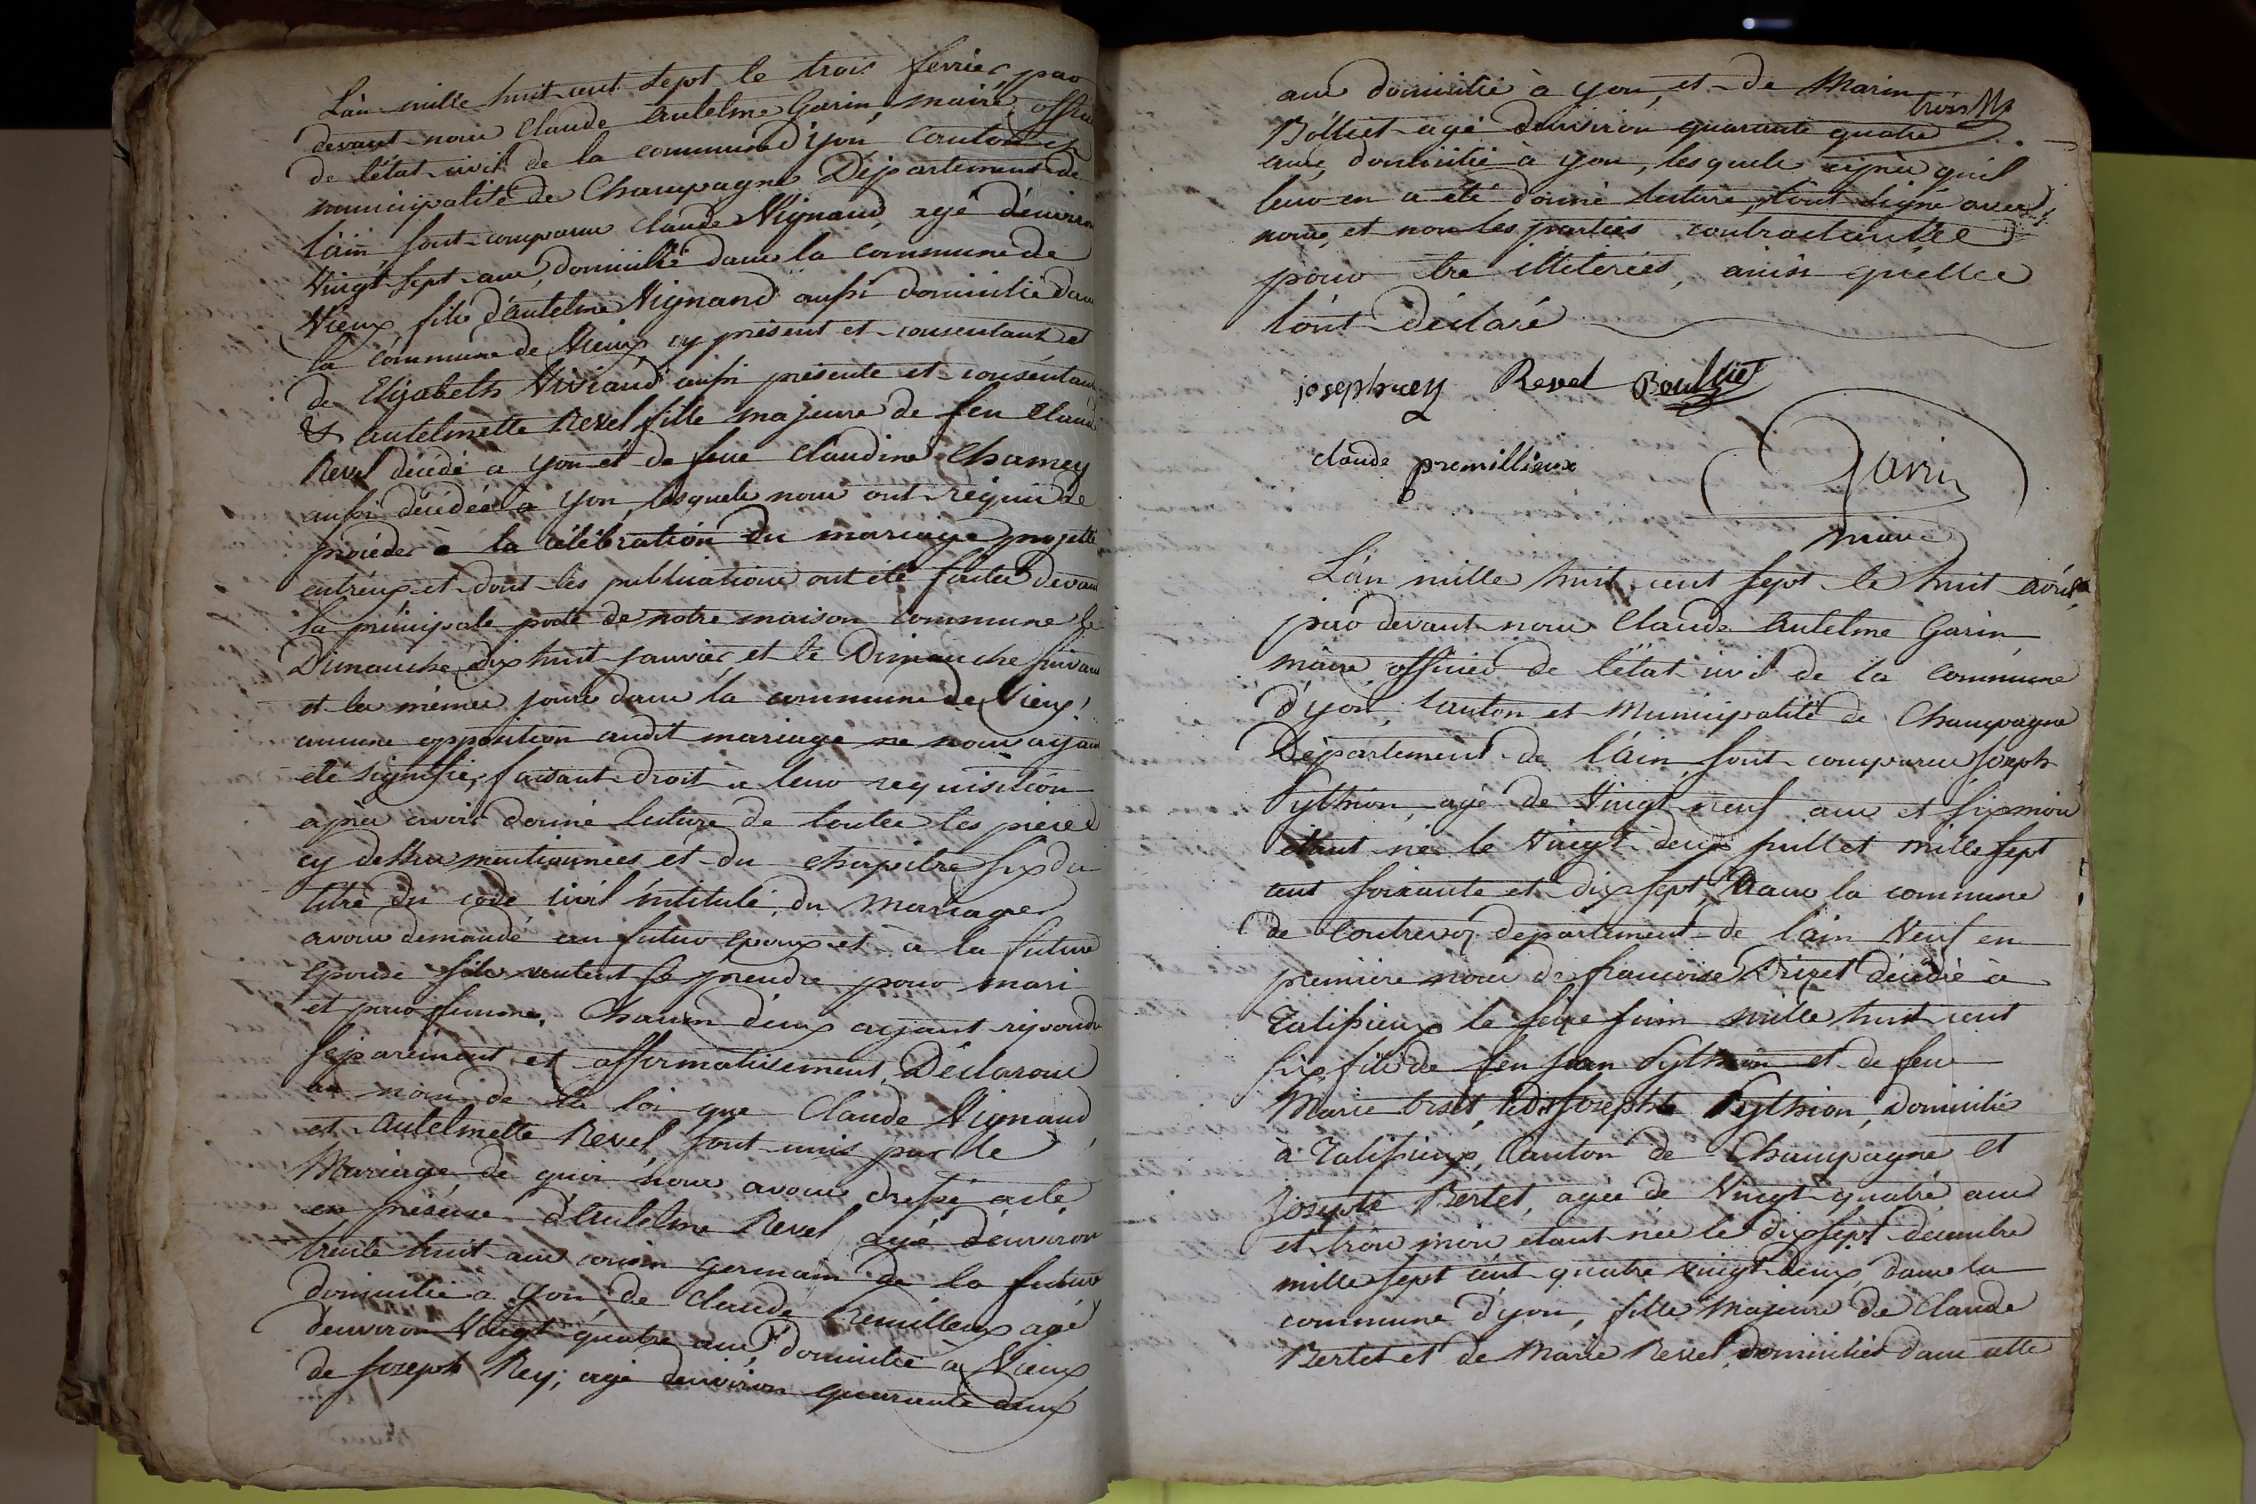 L'an mille huit cent sept le trois fevrier, par
devant nous Claude Antelme Garin, maire, offi
de l'état civil de la commune d'yon, canton et
municipalité de Champagne Département de
l'ain, sont comparus Claude Vignand, agé d'environ
vingt sept ans, domicilié dans la commune de
Vieux fils d'antelme Vignand aussi domicilié dans
la commune de Vieux, cy présent et consentant et
de Elizabeth Viviand aussi présente et consentante
& antelmette Revel fille majeure de feu Claude
Revel décédé a yon et de feue Claudine Charney
aussi décédée à yon, lesquels nous ont requis de
procéder à la célébration du mariage projetté
entr'eux et dont les publications ont été faites devant
la principale porte de notre maison commune le
Dimanche dix huit janvier et le Dimanche suivant
et les mêmes jours dans la commune de Vieux,
aucune opposition audit mariage ne nous ayant
été signifiée, faisant droit a leur requisition
après avoir donné lecture de toutes les pieces
cy dessus mentionnées et du chapitre six du
titre du code civil intitulé du mariage
avons demandé au futur epoux et a la future
epouse s'ils veulent se prendre pour mari
et pour femme, Chacun d'eux ayant répondu
séparément et affirmativement, Déclarons
au nom de la loi que Claude Vignand,
et Antelmette Revel sont unis par le
Mariage, de quoi nous avons dressé acte
en présence d'Antelme Revel agé d'environ
trente huit ans cousin germain de la future
domicilié à yon de Claude Premillieux agé
d'environ Vingt quatre ans, domicilié a Vieux
de Joseph Rey, agé denviron quarante deux
ans domicilié à yon, et de Marin
trois
Bolliet agé denviron quarante quatre
ans, domicilié à yon, lesquels après qu'il
leur en a été donné lecture, ont signé avec
nous, et non les parties contractantes
pour être illiterées, ainsi qu'elles
l'ont déclaré
joseph rey Revel Boulliet
claude premillieux
Garin
maire
L'an mille huit cent sept le huit avril,
par devant nous Claude Antelme Garin,
maire, officier de l'état civil de la commune
d'yon, canton et Municipalité de Champagne
Département de l'ain, sont comparus Joseph
Pythion, agé de Vingt neuf ans et six mois
étant né le Vingt deux juillet mille sept
cent soixante et dix sept, dans la commune
de Contrevoz département de l'ain Veuf en
premiere noces de francoise Brizet décédée à
Talissieux le seize juin mille huit cent
six, fils de feu Jean Pythion et de feue
Marie ledit Joseph Pythion, domicilié
à Talissieux, Canton de Champagne et
Josepte Bertet, agée de Vingt quatre ans
et trois mois, étant née le dix sept décembre
mille sept cent quatre vingt deux, dans la
commune d'yon, fille Majeure de Claude
Bertet et de Marie Revel, domiciliés dans cette